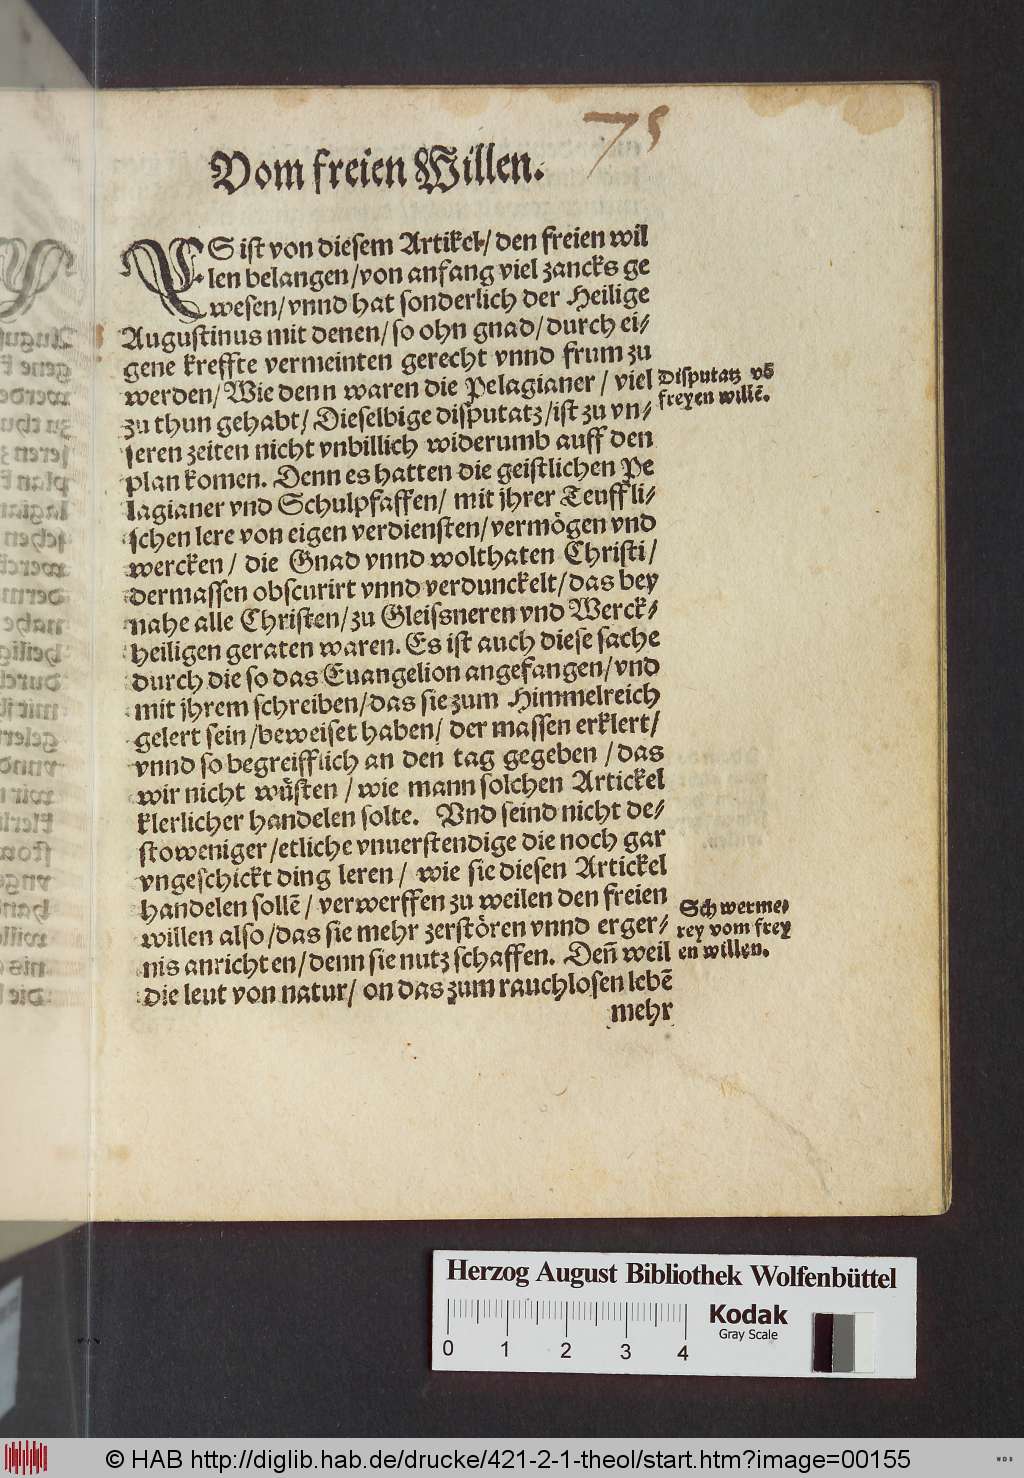 75
Vom freien Willen.
ES ist von diesem Artikel/ den freien wil
len belangen/ von anfang viel zancks ge
wesen/ vnnd hat sonderlich der Heilige
Augustinus mit denen/ so ohn gnad/ durch ei-
gene kreffte vermeinten gerecht vnnd frum zu
werden/ Wie denn waren die Pelagianer/ viel
zu thun gehabt/ Dieselbige disputatz/ ist zu vn-
seren zeiten nicht vnbillich widerumb auff den
plan komen. Denn es hatten die geistlichen Pe
lagianer vnd Schulpfaffen/ mit jhrer Teuffli-
schen lere von eigen verdiensten/ vermögen vnd
wercken/ die Gnad vnnd wolthaten Christi/
dermassen obscurirt vnnd verdunckelt/ das bey
nahe alle Christen/ zu Gleissneren vnd Werck-
heiligen geraten waren. Es ist auch diese sache
durch die so das Euangelion angefangen/ vnd
mit jhrem schreiben/ das sie zum Himmelreich
gelert sein/ beweiset haben/ der massen erklert/
vnnd so begreifflich an den tag gegeben/ das
wir nicht wüsten/ wie mann solchen Artickel
klerlicher handelen solte. Vnd seind nicht de-
stoweniger/ etliche vnuerstendige die noch gar
vngeschickt ding leren/ wie sie diesen Artickel
handelen sollē/ verwerffen zu weilen den freien
willen also/ das sie mehr zerstören vnnd erger-
nis anrichten/ denn sie nutz schaffen. Deñ weil
die leut von natur/ on das zum rauchlosen lebē
mehr
Disputatz vō
freyen willē.
Schwerme-
rey vom frey
en willen.
Herzog August Bibliothek Wolfenbüttel
0 1 2 3 4
Kodak
Gray Scale
© HAB http://diglib.hab.de/drucke/421-2-1-theol/start.htm?image=00155